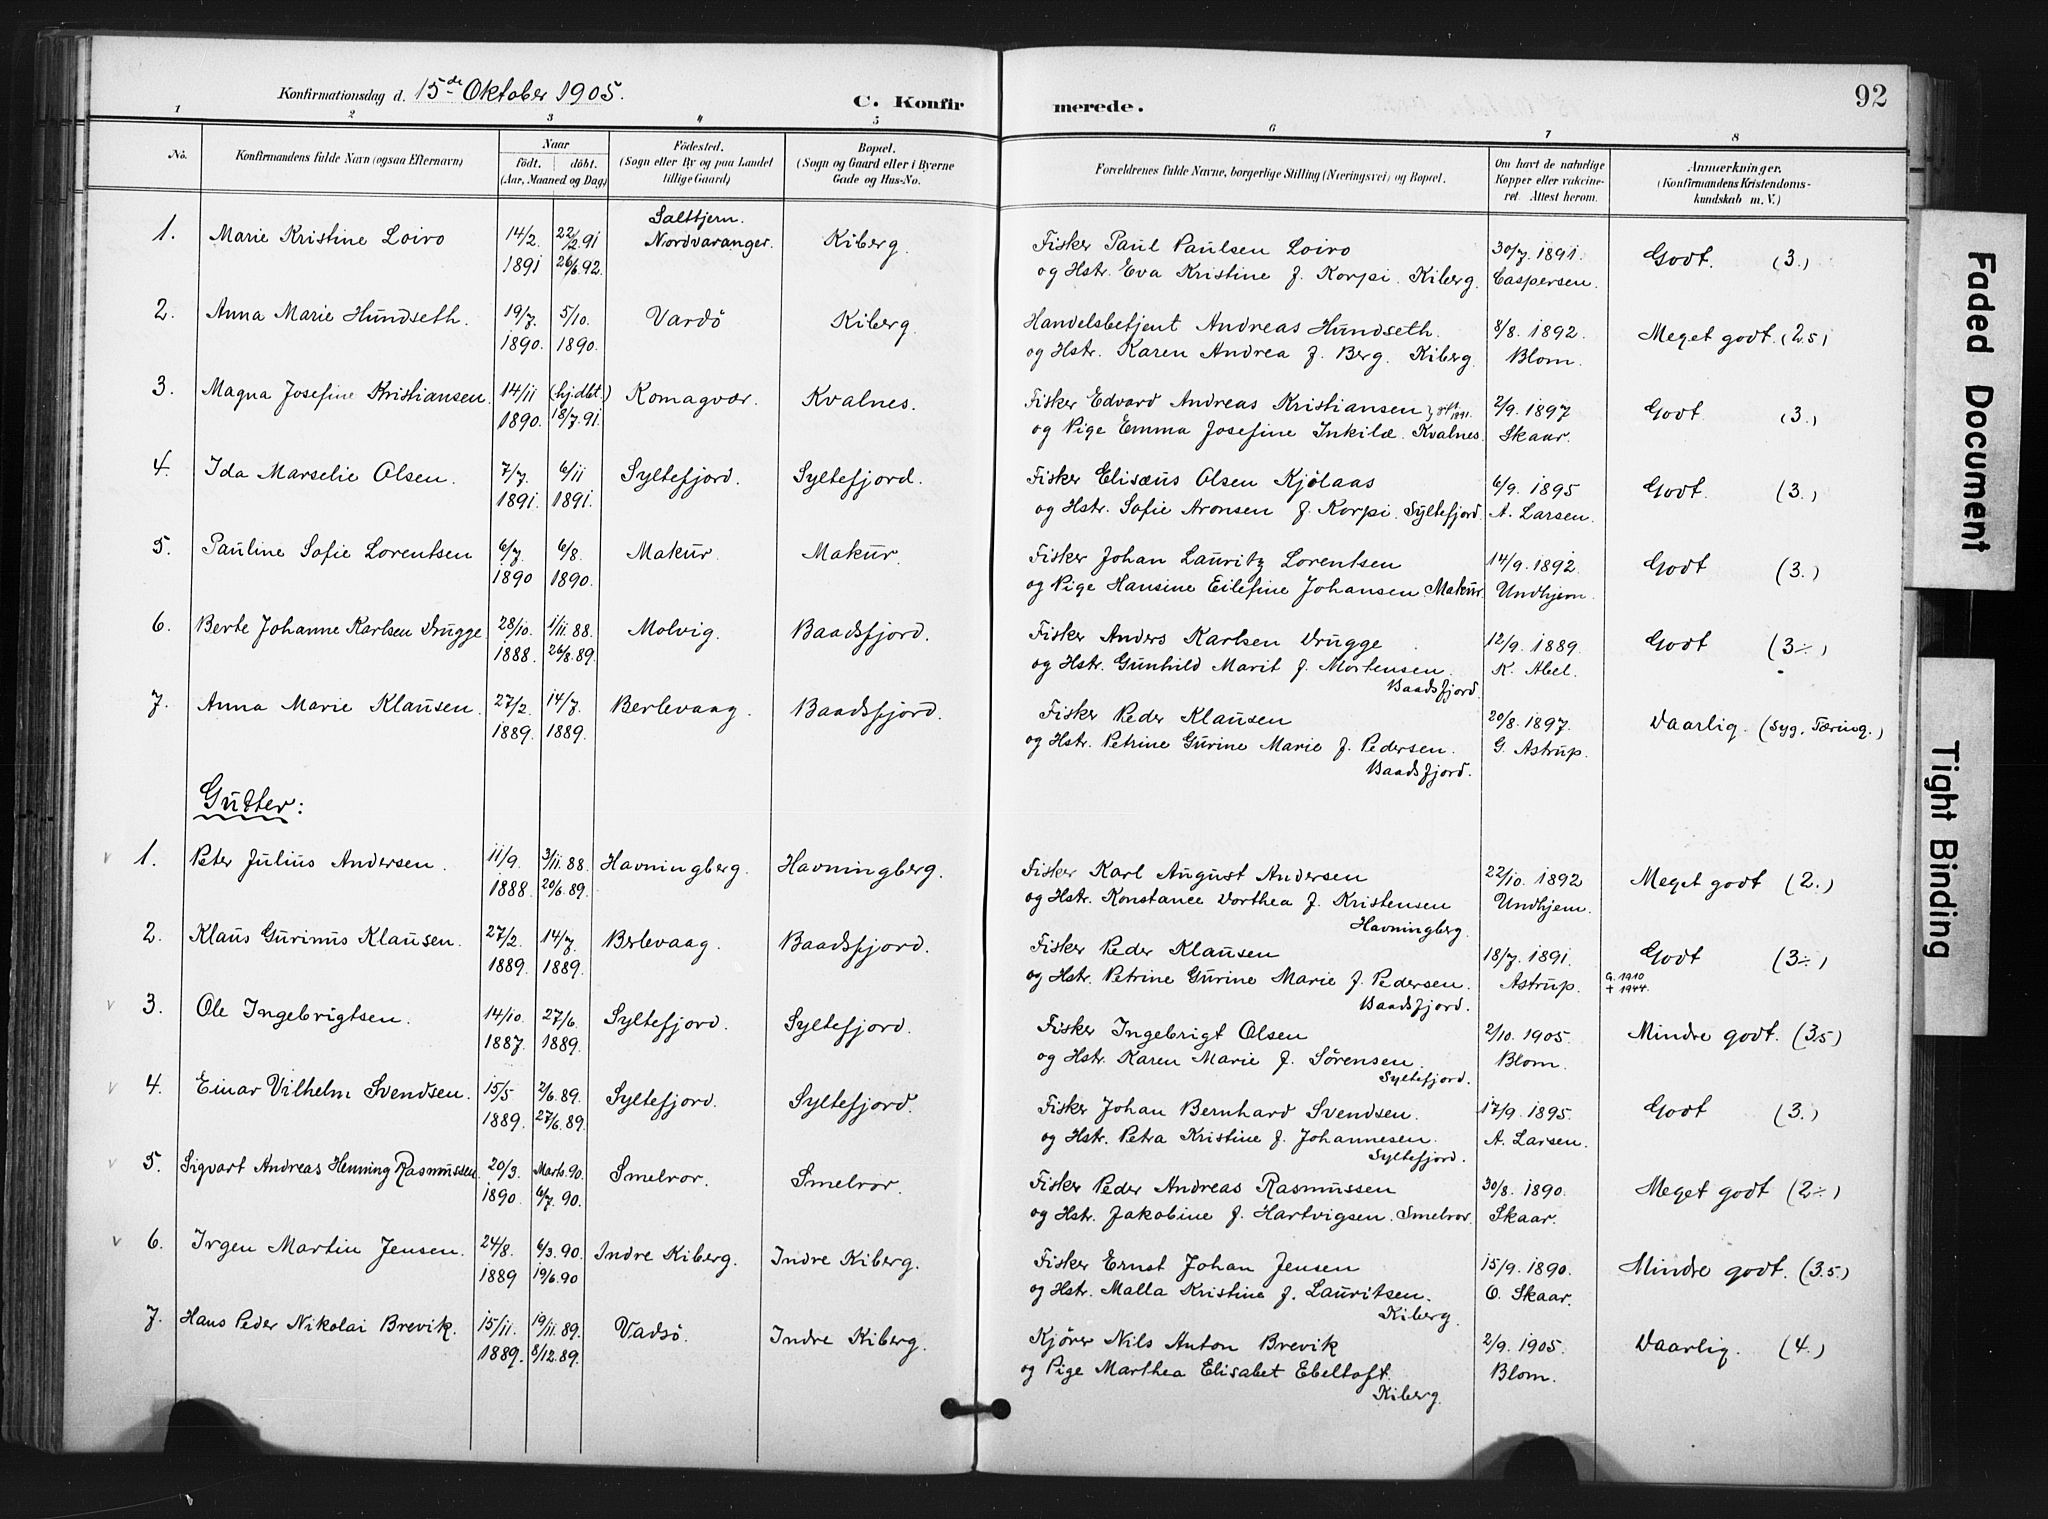 Konfirmationsdag d. 15de Oktober 1905.
C. Konfirmerede.
92
1 2 3 4 5 6 7 8
No.
Konfirmandens fulde Navn (ogsaa Efternavn)
Naar
födt. döbt.
(Aar, Maaned og Dag)
Födested.
(Sogn eller By og paa Landet
tillige Gaard)
Bopæl.
(Sogn og Gaard eller i Byerne
Gade og Hus-No.
Forældrenes fulde Navne, borgerlige Stilling (Næringsvei) og Bopæl.
Om havt de naturlige
Kopper eller vakcine-
ret. Attest herom.
Anmærkninger.
(Konfirmandens Kristendoms-
kundskab m. V.)
1. Marie Kristine Loivo 14/2. 1891 22/2.91 26/6.92. Saltbjern. Nordvaranger. Kiberg.
Fisker Paul Paulsen Loivo
og Hstr. Eva Kristine f. Korpi. Kiberg.
30/7. 1891. Caspersen. Godt. (3.)
2. Anna Marie Hundseth. 19/7. 1890. 5/10. 1890. Vardö Kiberg.
Handelsbetjent Andreas Hundseth.
og Hstr. Karen Andrea f. Berg. Kiberg.
8/8. 1892. Blom. Meget godt. (2.5)
3. Magna Josefine Kristiansen. 14/11 1890. (hj.dbt.) 18/7.91. Komagvær. Kvalnes.
Fisker Edvard Andreas Kristiansen
og Pige Emma Josefine Inkilæ. Kvalnes.
2/9. 1897 Skaar. Godt (3.)
4. Ida Marselie Olsen. 7/7. 1891. 6/11 1891. Syltefjord. Syltefjord.
Fisker Elisæus Olsen Kjölaas
og Hstr. Sofie Aronsen f. Korpi. Syltefjord.
6/9. 1895 A. Larsen. Godt. (3.)
5. Pauline Sofie Lorentsen 6/7. 1890 6/8. 1890. Makur. Makur.
Fisker Johan Lauritz Lorentsen
og Pige Hansine Eilefine Johansen. Makur.
14/9. 1892. Undhjem. Godt (3.)
6. Berte Johanne Karlsen Drugge 28/10. 1888. 1/11.88. 26/8.89. Molvig. Baadsfjord.
Fisker Anders Karlsen Drugge
og Hstr. Gunhild Marit f. Mortensen.
Baadsfjord.
12/9. 1889. K. Abel. Godt (3÷)
7. Anna Marie Klausen. 27/2. 1889. 14/7. 1889. Berlevaag. Baadsfjord.
Fisker Peder Klausen
og Hstr. Petrine Gurine Marie f. Pedersen.
Baadsfjord.
20/8. 1897. G. Astrup. Daarlig. (Syg, Tæring.)
Gutter:
1. Peter Julius Andersen. 11/9. 1888. 3/11.88. 20/6.89. Havningberg. Havningberg.
Fisker Karl August Andersen
og Hstr. Konstance Dorthea f. Kristensen
Havningberg.
22/10. 1892 Undhjem. Meget godt (2.)
2. Klaus Gurinus Klausen. 27/2. 1889. 14/7. 1889. Berlevaag. Baadsfjord.
Fisker Peder Klausen
og Hstr. Petrine Gurine Marie f. Pedersen.
Baadsfjord.
18/7. 1891. Astrup. Godt (3÷)
G. 1910
† 1944.
3. Ole Ingebrigtsen. 14/10. 1887. 27/6. 1889. Syltefjord. Syltefjord.
Fisker Ingebrigt Olsen
og Hstr. Karen Marie f. Sörensen.
Syltefjord.
2/10. 1905. Blom. Mindre godt. (3.5)
4. Einar Vilhelm Svendsen. 15/5 1889. 2/6.89. 27/6.89. Syltefjord. Syltefjord.
Fisker Johan Bernhard Svendsen.
og Hstr. Petra Kristine f. Johannesen.
Syltefjord.
17/9. 1895. A. Larsen. Godt (3.)
5. Sigvart Andreas Henning Rasmussen. 20/3. 1890. Marts.90. 6/7.90. Smelror. Smelror.
Fisker Peder Andreas Rasmussen
og Hstr. Jakobine f. Hartvigsen. Smelror.
30/8. 1890. Skaar. Meget godt (2÷)
6. Irgen Martin Jensen. 24/8. 1889 6/3.90. 19/6.90 Indre Kiberg. Indre Kiberg.
Fisker Ernst Johan Jensen
og Hstr. Malla Kristine f. Lauritsen.
Kiberg.
15/9. 1890. O. Skaar. Mindre godt. (3.5.)
7. Hans Peder Nikolai Brevik. 15/11. 1889. 19/11.89. 8/12.89. Vadsö. Indre Kiberg.
Kjörer Nils Anton Brevik
og Pige Marthea Elisabet Ebeltoft.
Kiberg.
2/9. 1905. Blom. Daarlig. (4.)
Faded Document
Tight Binding